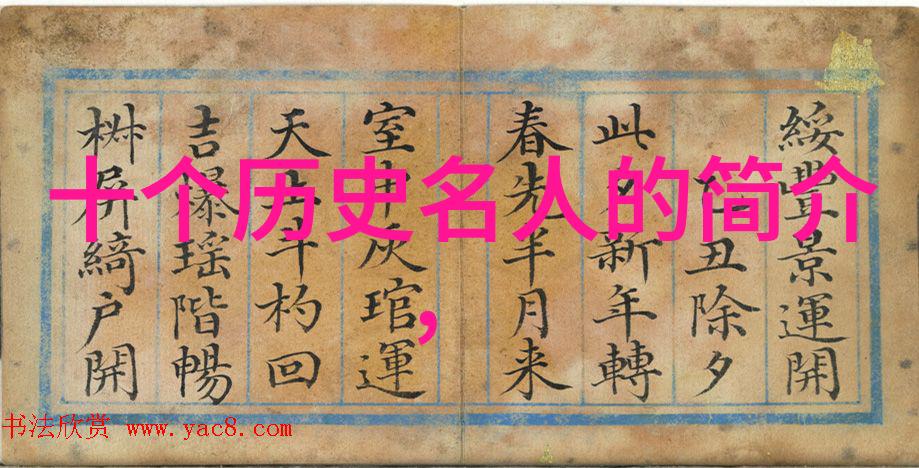 十个历史名人的简介
，
綏豐景運開
丑除夕
此夕新年轉
春先半月来
室中灰琯運
天上斗杓回
吉爆瑶階暢
椒屏綺户開
书法欣赏 www.yac8.com